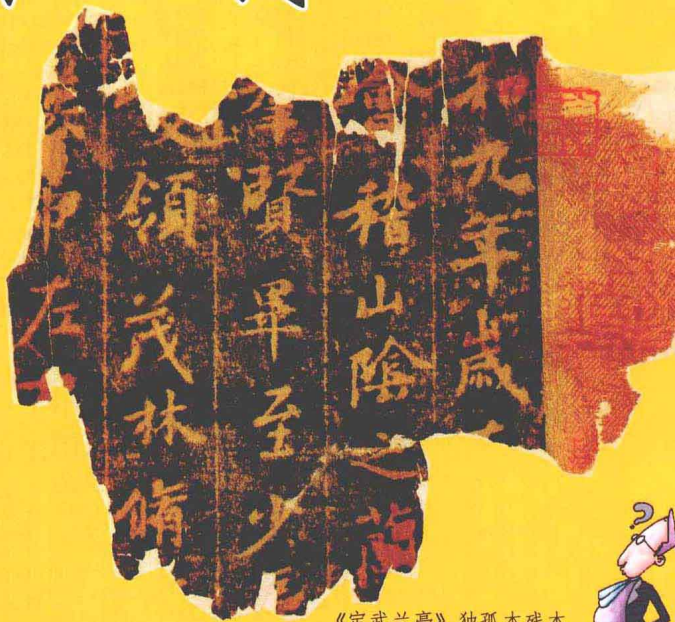 和九年歲
會稽山陰之蘭
賢畢至少
領茂林脩
帶左
《定武兰亭》独孤本残本
?